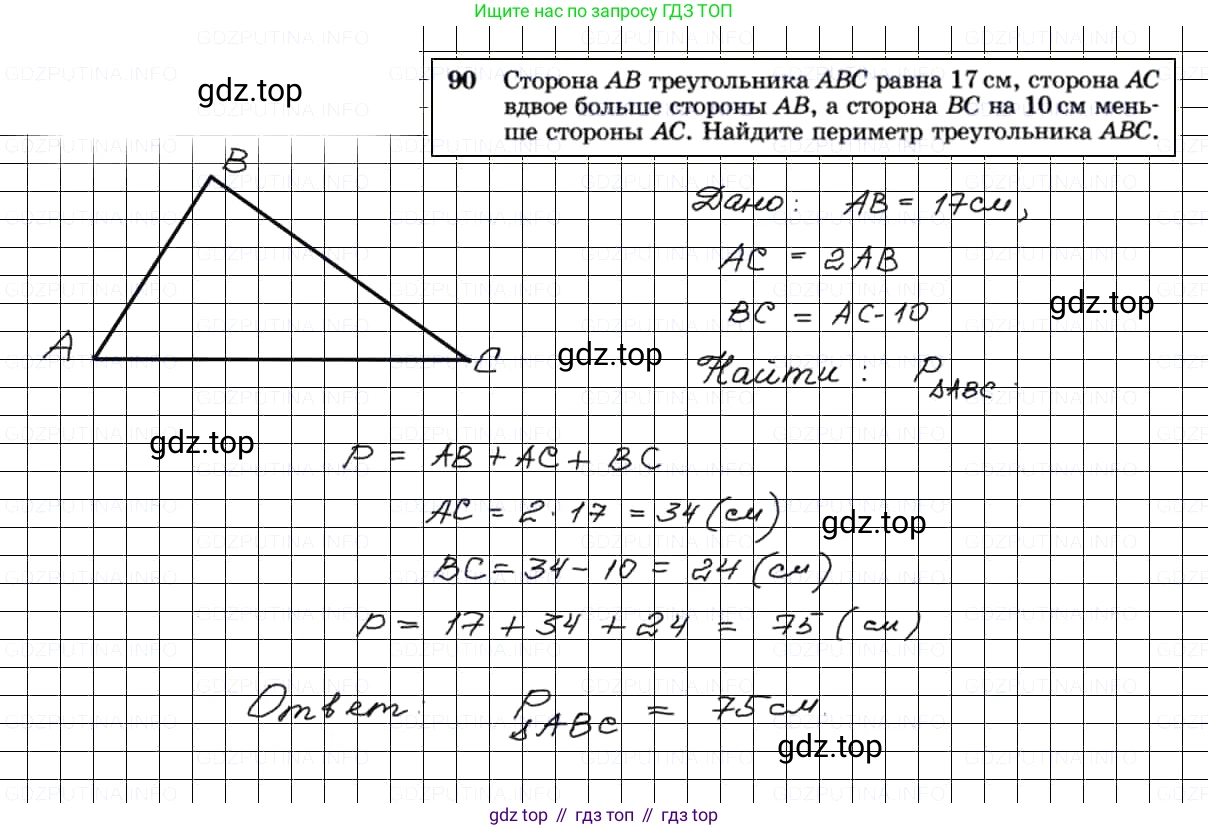 Ищите нас по запросу ГДЗ ТОП
90 Сторона AB треугольника ABC равна 17 см, сторона AC
вдвое больше стороны AB, а сторона BC на 10 см мень-
ше стороны AC. Найдите периметр треугольника ABC.
gdz.top
B
Дано: AB = 17см,
AC = 2AB
BC = AC-10
gdz.top
A
C
gdz.top
Найти: P ΔABC.
gdz.top
P = AB + AC + BC
AC = 2 · 17 = 34 (см)
gdz.top
BC = 34 - 10 = 24 (см)
P = 17 + 34 + 24 = 75 (см)
Ответ: P ΔABC = 75 см.
gdz.top
gdz top // гдз топ // гдз top
GDZPUTINA.INFO